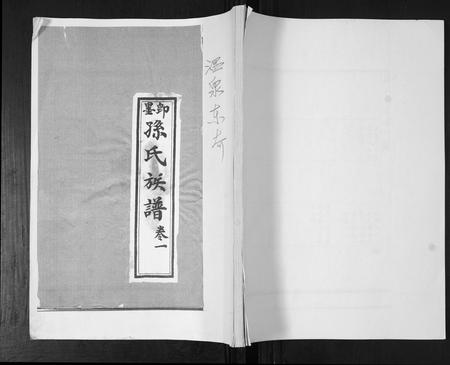 即墨
孫氏族譜
卷一
温泉东